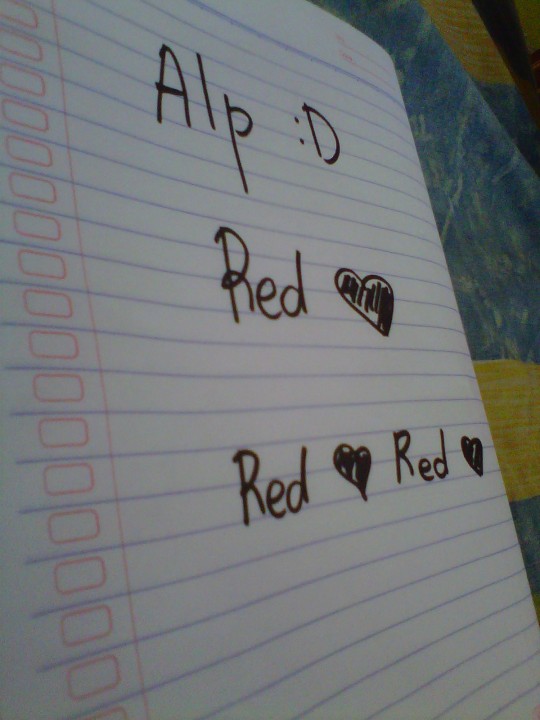 Alp :D
Red ♥
Red ♥ Red ♥